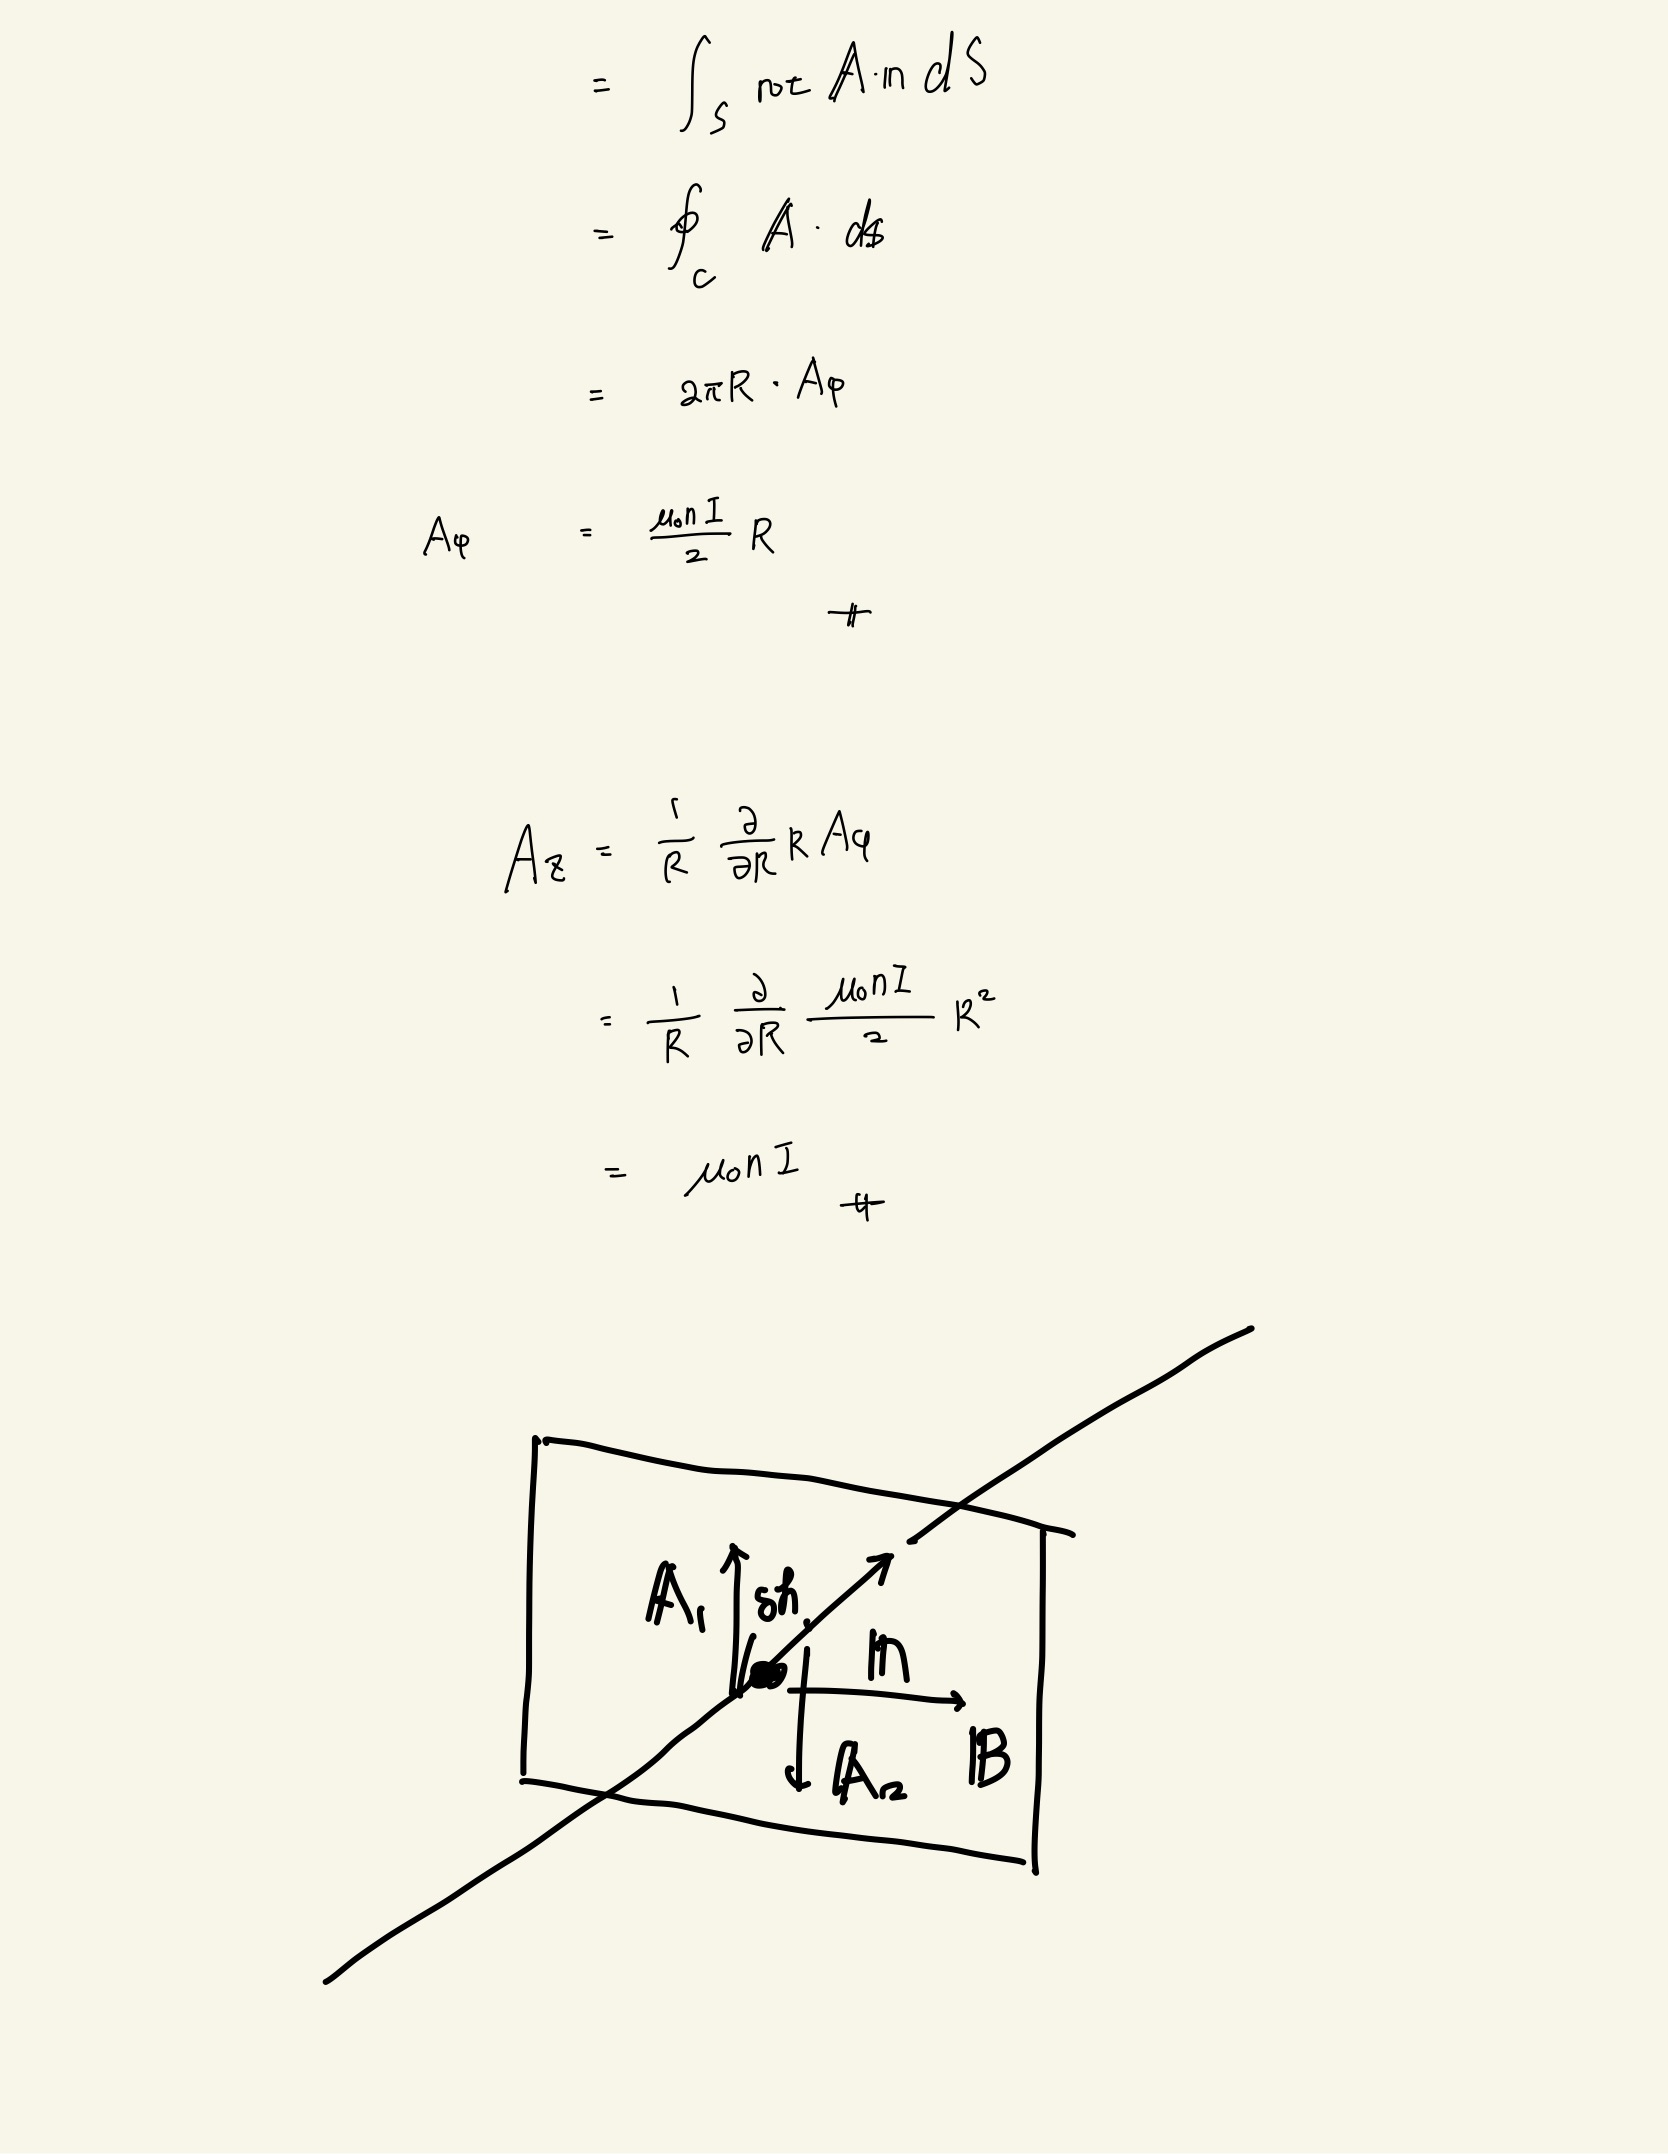 = ∫_S rot A·n dS
= ∮_C A · ds
= 2πR · Aφ
Aφ = μ₀nI/2 R
#
A_z = 1/R ∂/∂R R Aφ
= 1/R ∂/∂R μ₀nI/2 R²
= μ₀nI
#
A₁ δh n
A₂ B